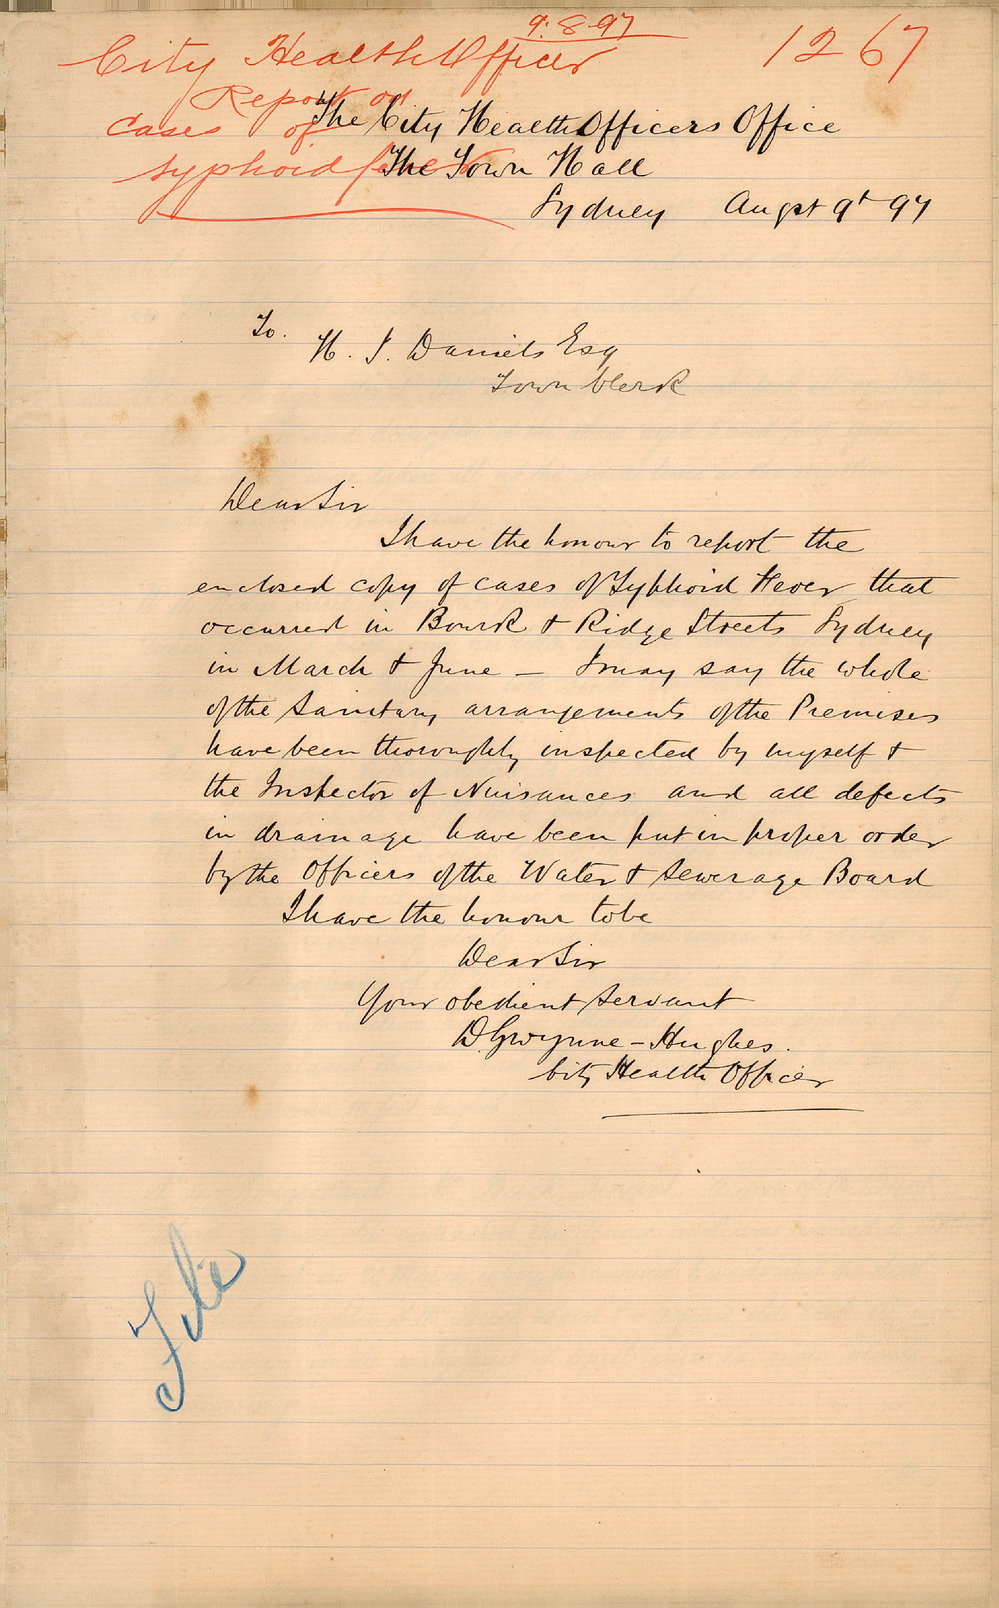 9.8.97
City Health Officer
1267
Report on
cases of
typhoid fever
The City Health Officers Office
The Town Hall
Sydney Augst 9th 97
To.
H. J. Daniels Esq
Town Clerk
Dear Sir
I have the honour to report the
enclosed copy of cases of Typhoid Fever that
occurred in Bourk & Ridge Streets Sydney
in March & June – I may say the whole
of the Sanitary arrangements of the Premises
have been thoroughly inspected by myself &
the Inspector of Nuisances and all defects
in drainage have been put in proper order
by the Officers of the Water & Sewerage Board
I have the honour to be
Dear Sir
Your obedient Servant
D. Gwynne-Hughes.
City Health Officer
File